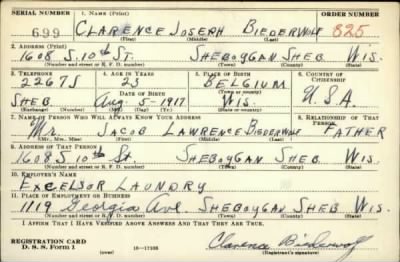 SERIAL NUMBER 1. NAME (Print) ORDER NUMBER
699 CLARENCE JOSEPH BIEDERWOLF 825
(First) (Middle) (Last)
2. ADDRESS (Print)
1608 S. 10th ST. SHEBOYGAN SHEB. WIS.
(Number and street or R. F. D. number) (Town) (County) (State)
3. TELEPHONE 4. AGE IN YEARS 5. PLACE OF BIRTH 6. COUNTRY OF CITIZENSHIP
2267J 23 BELGIUM
DATE OF BIRTH
SHEB. Aug. 5-1917 WIS. U.S.A.
(Exchange) (Number) (Mo.) (Day) (Yr.) (State or country)
7. NAME OF PERSON WHO WILL ALWAYS KNOW YOUR ADDRESS 8. RELATIONSHIP OF THAT PERSON
Mr. JACOB LAWRENCE BIEDERWOLF FATHER
(Mr., Mrs., Miss) (First) (Middle) (Last)
9. ADDRESS OF THAT PERSON
1608 S 10th St. SHEBOYGAN SHEB. WIS.
(Number and street or R. F. D. number) (Town) (County) (State)
10. EMPLOYER'S NAME
EXCELSOR LAUNDRY
11. PLACE OF EMPLOYMENT OR BUSINESS
1119 Georgia Ave. SHEBOYGAN SHEB WIS.
(Number and street or R. F. D. number) (Town) (County) (State)
I AFFIRM THAT I HAVE VERIFIED ABOVE ANSWERS AND THAT THEY ARE TRUE.
REGISTRATION CARD
D. S. S. Form 1 (over) 16-17105 Clarence Biederwolf
(Registrant's signature)